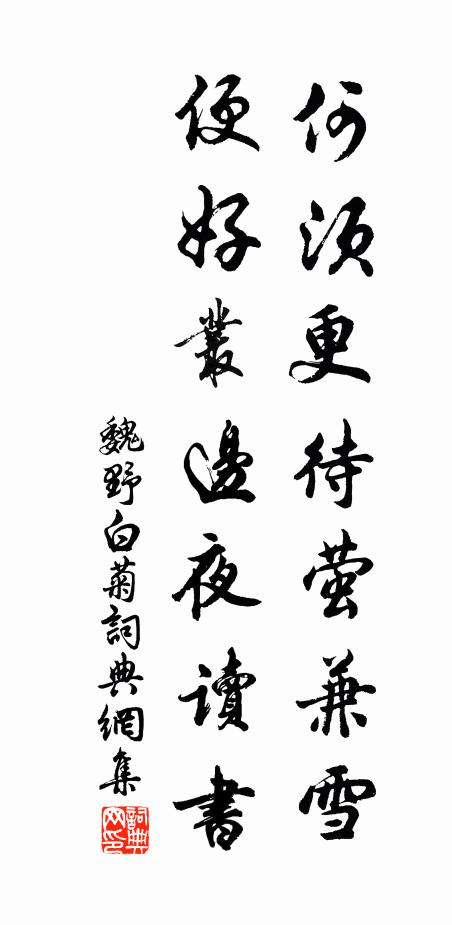 何須更待螢兼雪
便好叢邊夜讀書
魏野白菊詞典網集
詞典网印